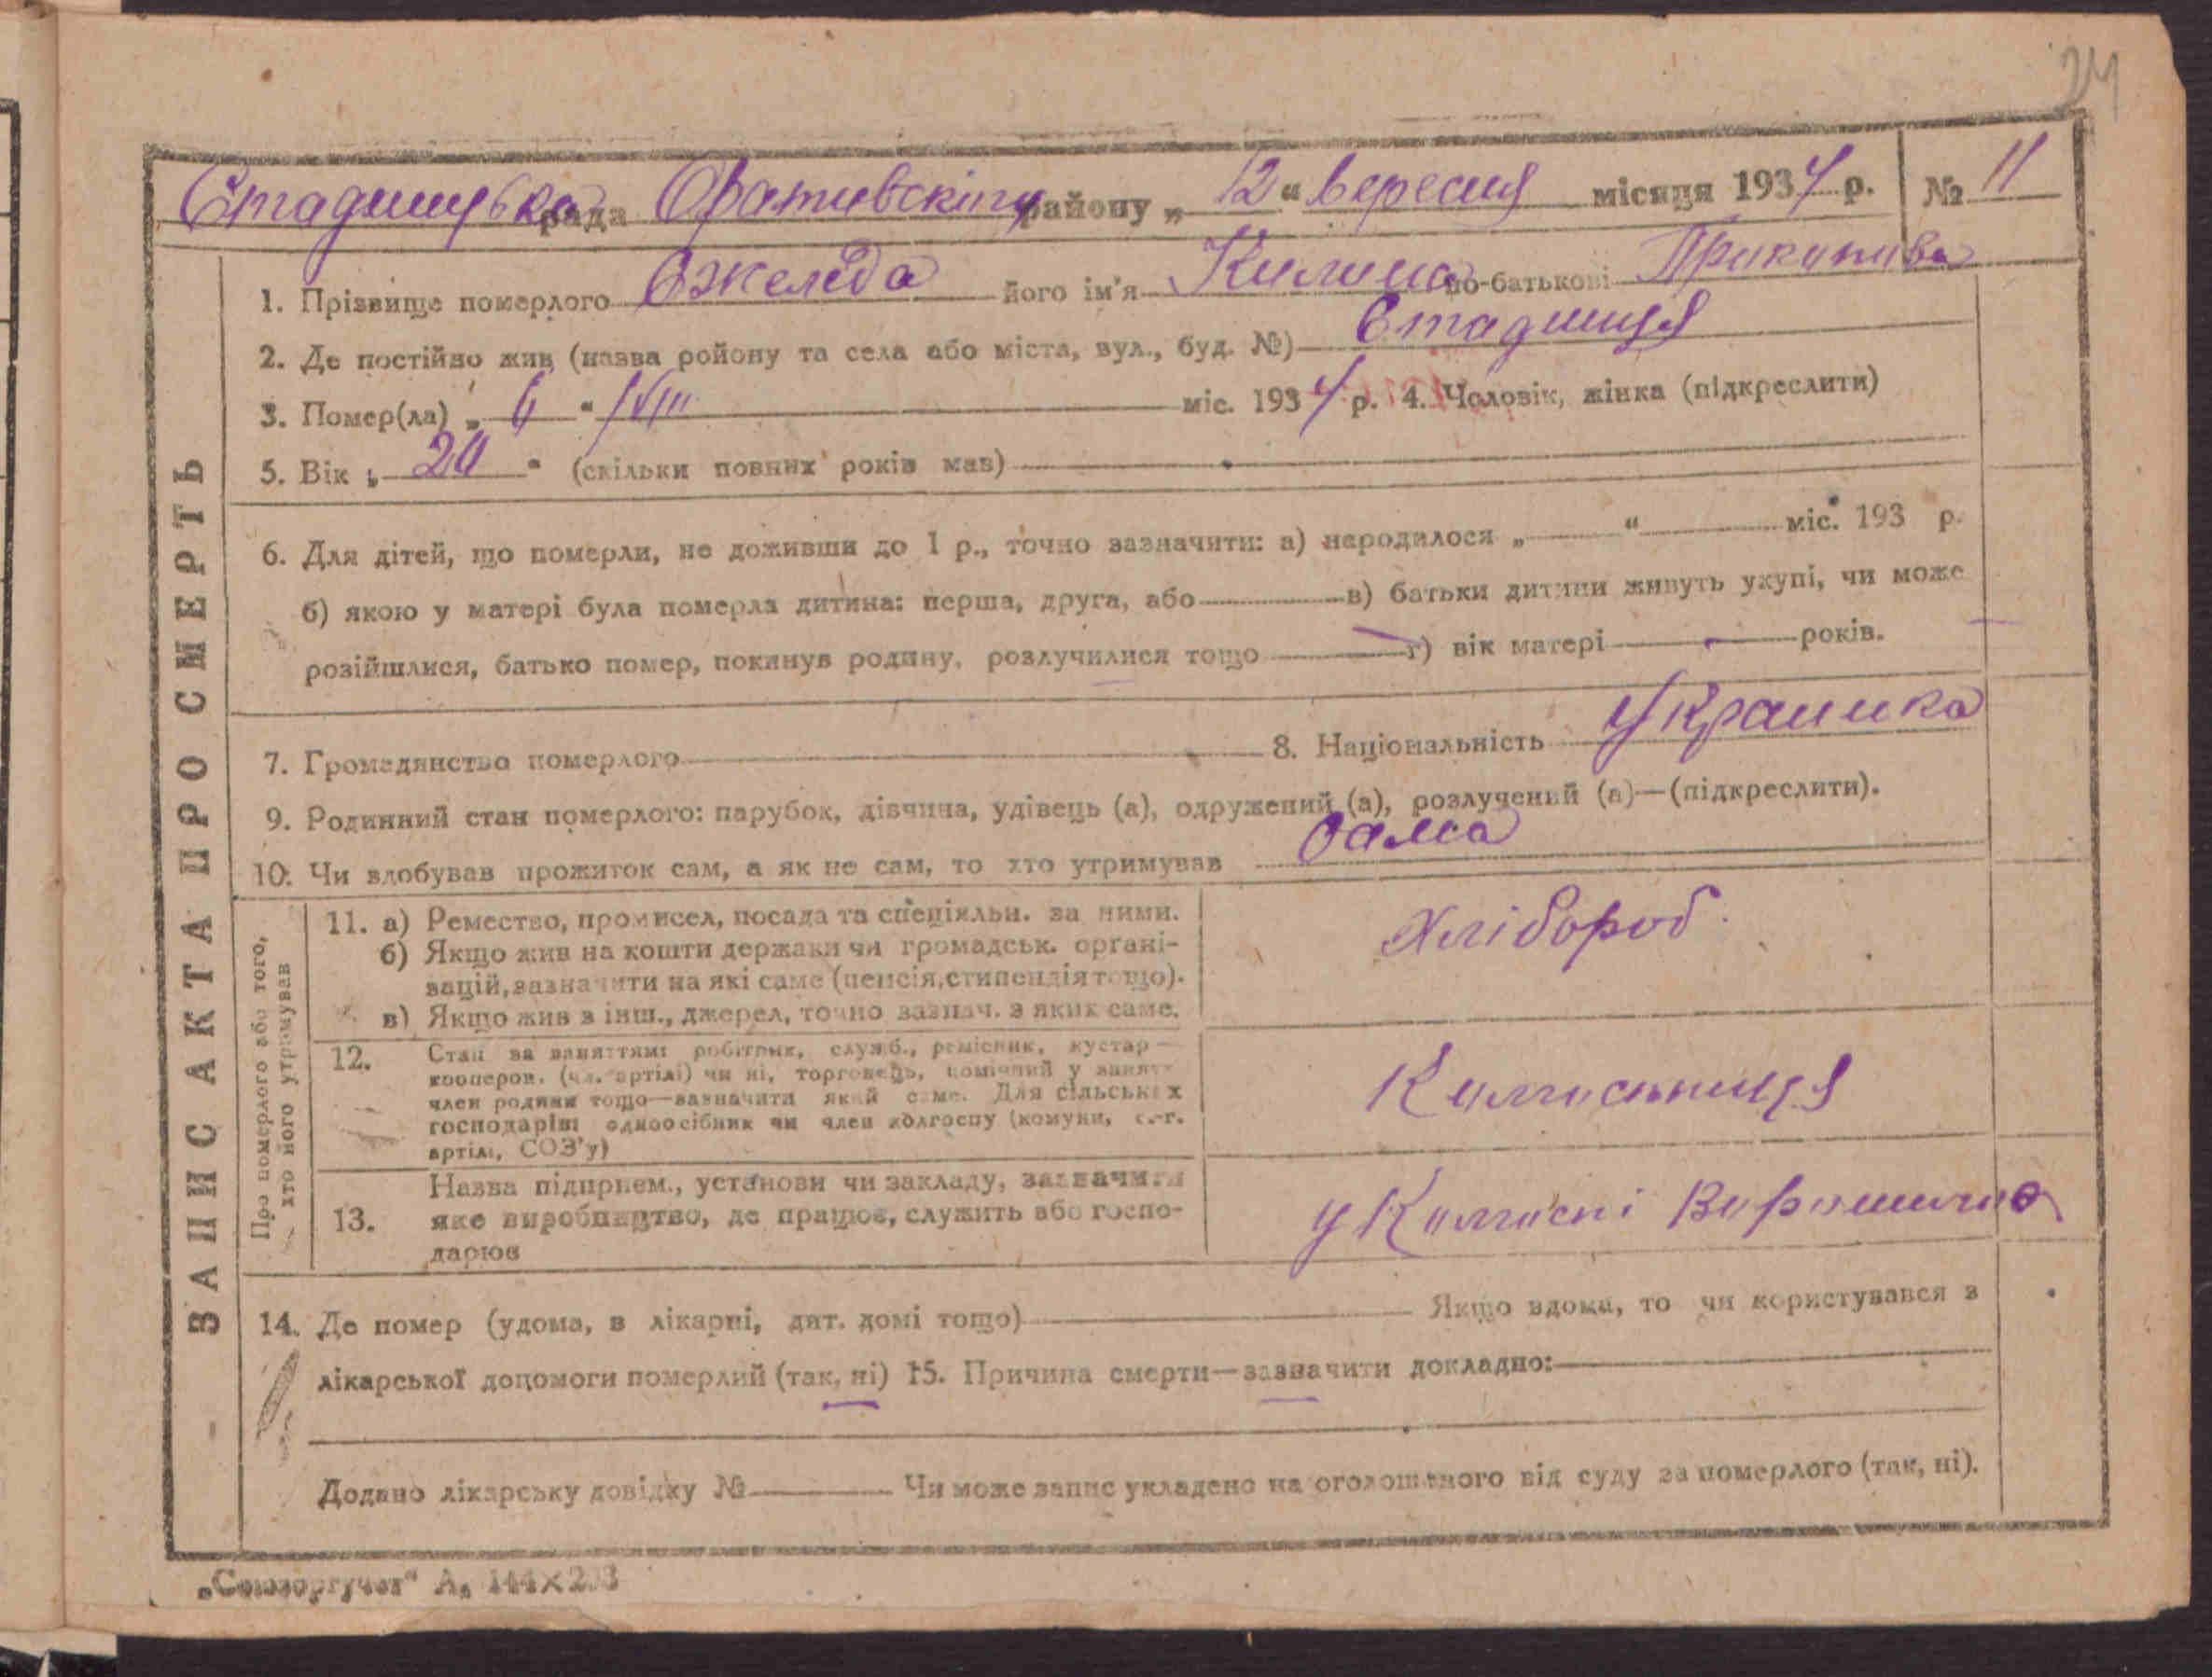 24
Стадницька рада Оратівського району „ 12 “ вересня місяця 1934 р. № 11
ЗАПИС АКТА ПРО СМЕРТЬ
1. Прізвище померлого Ожеледа його ім'я Килина по-батькові
2. Де постійно жив (назва ройону та села або міста, вул., буд. №) Стадниця
3. Помер(ла) „ 6 “ міс. 1934 р. 4. Чоловік, жінка (підкреслити)
5. Вік „ “ (скільки повних років мав)
6. Для дітей, що померли, не доживши до 1 р., точно зазначити: а) народилося „ “ міс. 193 р.
б) якою у матері була померла дитина: перша, друга, або в) батьки дитини живуть укупі, чи може
розійшлися, батько помер, покинув родину, розлучилися тощо г) вік матері років.
7. Громадянство померлого 8. Національність Украинка
9. Родинний стан померлого: парубок, дівчина, удівець (а), одружений (а), розлучений (а)—(підкреслити).
10. Чи здобував прожиток сам, а як не сам, то хто утримував сама
Про померлого або того,
хто його утримував
11. а) Ремество, промисел, посада та спеціяльн. за ними.
б) Якщо жив на кошти держави чи громадськ. органі-
зацій, зазначити на які саме (пенсія, стипендія тощо).
в) Якщо жив з інш., джерел, точно зазнач. з яких саме.
Хлібороб
12. Стан за заняттям: робітник, служб., ремісник, кустар—
кооперов. (чл. артілі) чи ні, торговець, помічний у занятт
член родини тощо—зазначити який саме. Для сільських
господарів: одноосібник чи член колгоспу (комуни, с.-г.
артілі, СОЗ'у)
Колгоспниця
13. Назва підприєм., установи чи закладу, зазначити
яке виробництво, де працює, служить або госпо-
дарює
у Колгоспі Ворошилова
14. Де помер (удома, в лікарні, дит. домі тощо) Якщо вдома, то чи користувався з
лікарської допомоги померлий (так, ні) 15. Причина смерти—зазначити докладно:
Додано лікарську довідку № Чи може запис укладено на оголошеного від суду за померлого (так, ні).
„Союзоргучет“ А